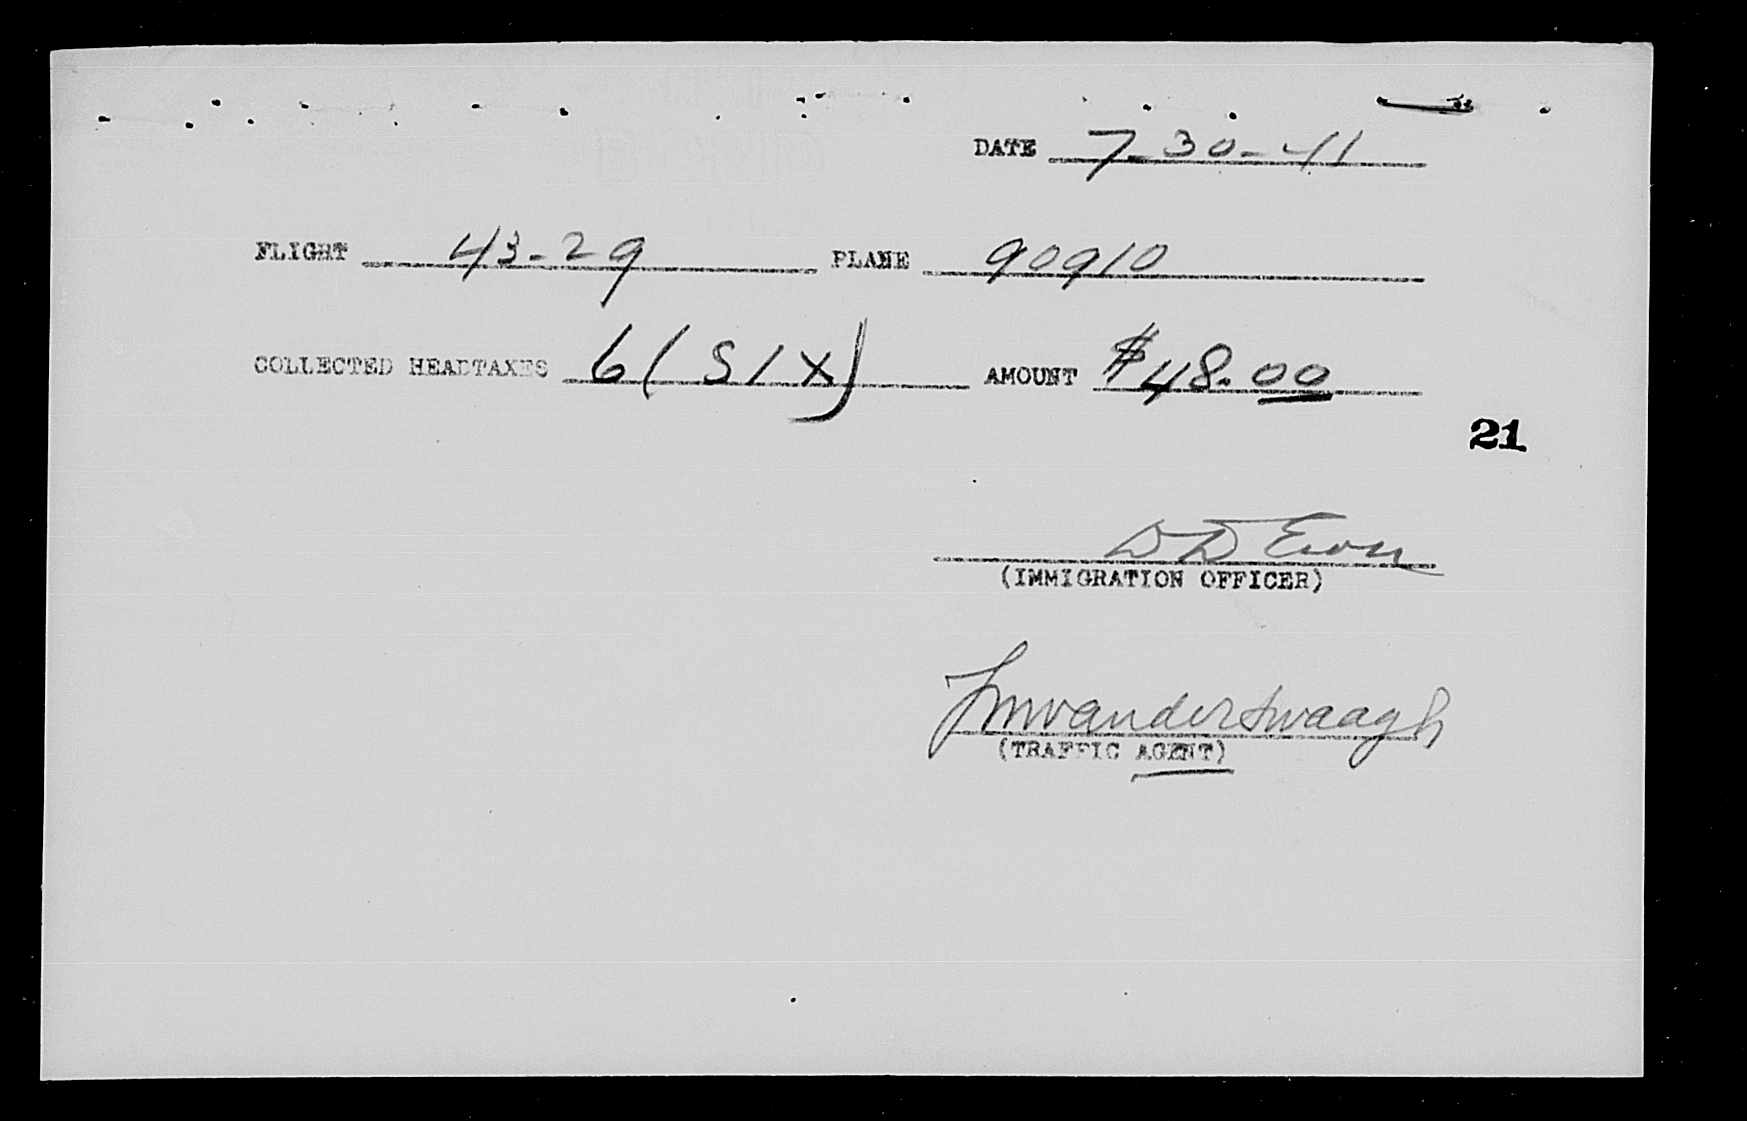 DATE 7-30-41
FLIGHT 43-29 PLANE 90910
COLLECTED HEADTAXES 6 (SIX) AMOUNT $48.00
21
D D
(IMMIGRATION OFFICER)
(TRAFFIC AGENT)